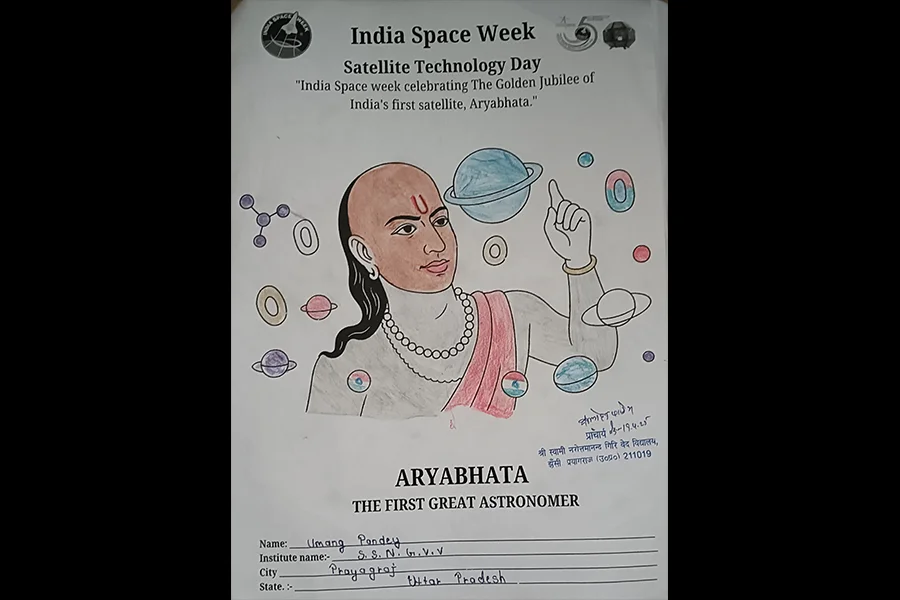 INDIA SPACE WEEK
India Space Week
Satellite Technology Day
"India Space week celebrating The Golden Jubilee of
India's first satellite, Aryabhata."
प्राचार्य 19.4.25
श्री स्वामी नरोत्तमानन्द गिरि वेद विद्यालय,
झूँसी, प्रयागराज (उ०प्र०) 211019
ARYABHATA
THE FIRST GREAT ASTRONOMER
Name: Umang Pandey
Institute name:- S.S.N.G.V.V
City Prayagraj
State. :- Uttar Pradesh